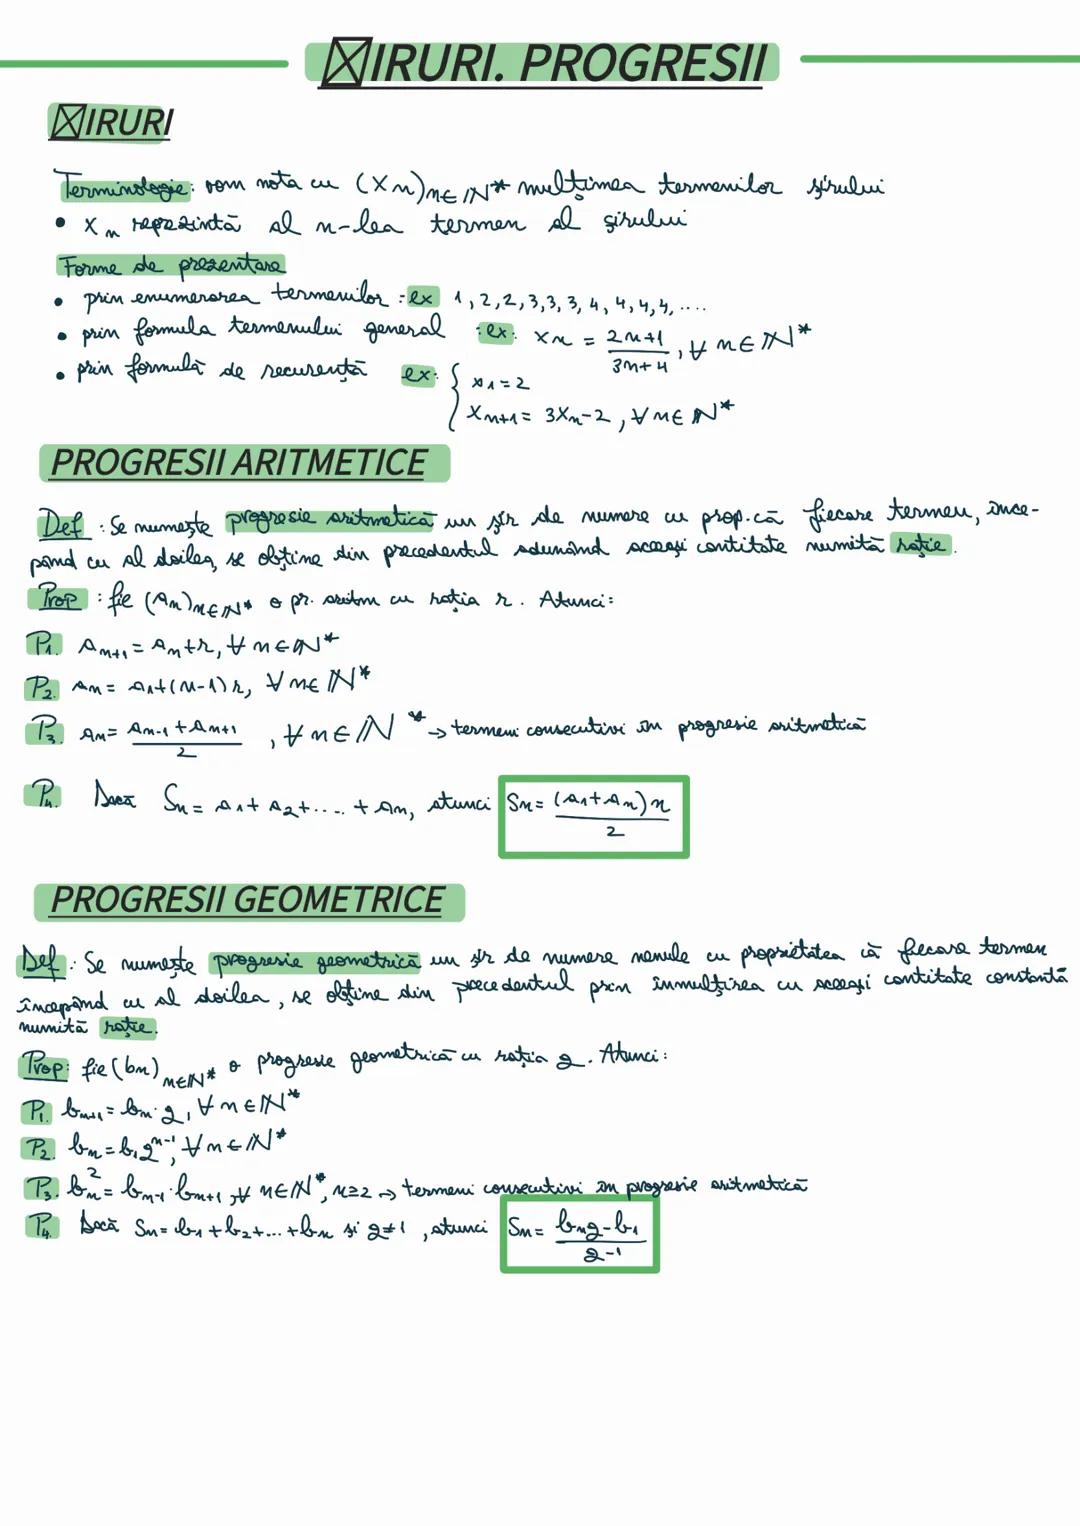 ☒IRURI. PROGRESII
☒IRURI
Terminologie: vom nota cu (Xn)n∈ℕ* mulțimea termenilor șirului
• Xn reprezintă al n-lea termen al șirului
Forme de prezentare
• prin enumerarea termenilor: ex 1, 2, 2, 3, 3, 3, 4, 4, 4, 4, ....
• prin formula termenului general : ex: xn = (2n+1)/(3n+4), ∀ n∈ℕ*
• prin formulă de recurență ex: { x1=2
xn+1= 3xn-2, ∀ n∈ ℕ*
PROGRESII ARITMETICE
Def : Se numește progresie aritmetică un șir de numere cu prop. că fiecare termen, înce-
pând cu al doilea, se obține din precedentul adunând aceeași cantitate numită rație.
Prop : fie (An)n∈ℕ* o pr. aritm cu rația r. Atunci:
P1. An+1= An+r, ∀ n∈ℕ*
P2. An= a1+(n-1)r, ∀ n∈ ℕ*
P3. An= (An-1+An+1)/2, ∀ n∈ℕ* → termeni consecutivi în progresie aritmetică
P4. Dacă Sn= a1+ a2+.... + an, atunci Sn= (a1+an)n/2
PROGRESII GEOMETRICE
Def: Se numește progresie geometrică un șir de numere nenule cu proprietatea că fiecare termen
începând cu al doilea, se obține din precedentul prin înmulțirea cu aceeași cantitate constantă
numită rație.
Prop: fie (bn)n∈ℕ* o progresie geometrică cu rația q. Atunci:
P1. bn+1= bn·q, ∀ n∈ℕ*
P2. bn=b1q^n-1, ∀ n∈ℕ*
P3. bn²= bn-1·bn+1, ∀ n∈ℕ*, n≥2 → termeni consecutivi în progresie aritmetică
P4. Dacă Sn= b1+b2+...+bn și q≠1, atunci Sn= (bnq-b1)/(q-1)